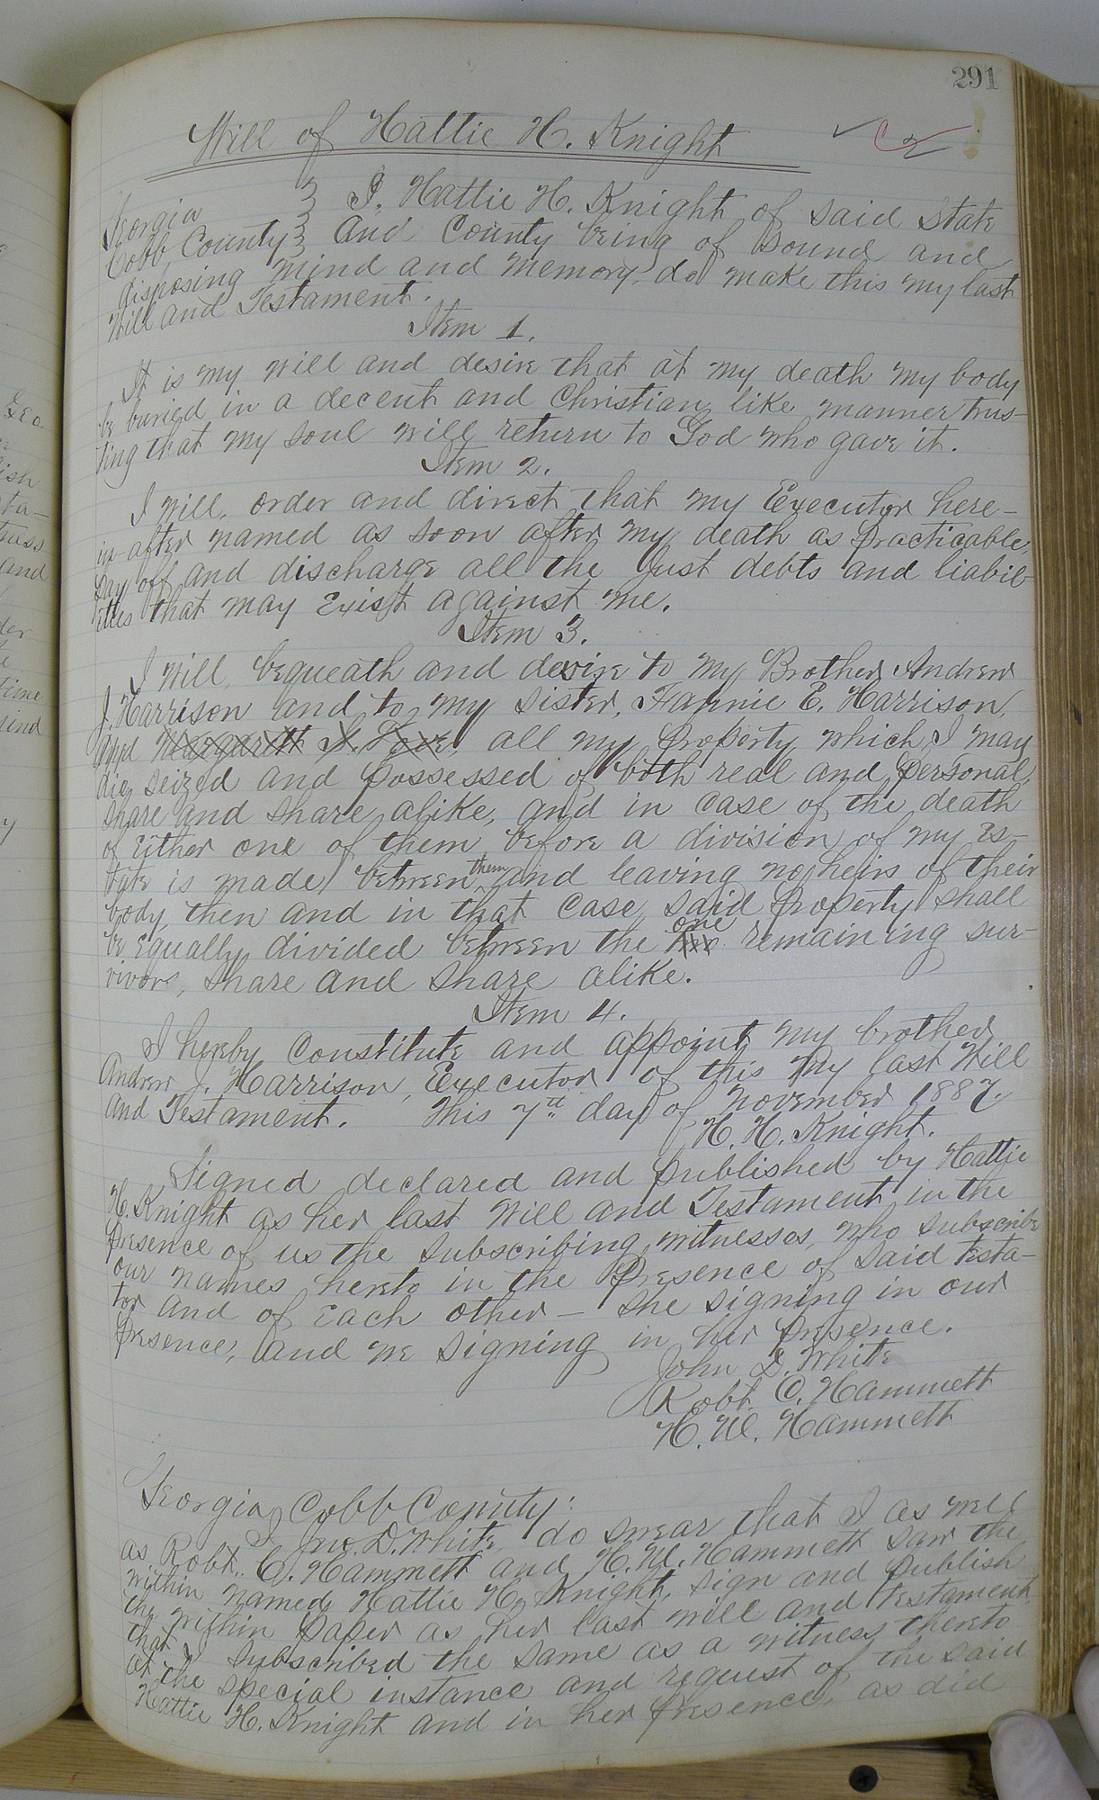 291
Will of Hattie H. Knight
Georgia } I, Hattie H. Knight of said State
Cobb County } and County being of sound and
disposing mind and memory do make this my last
Will and Testament.
Item 1.
It is my will and desire that at my death my body
be buried in a decent and Christian like manner trus-
ting that my soul will return to God who gave it.
Item 2.
I will, order and direct that my Executor here-
in after named as soon after my death as practicable,
pay off and discharge all the just debts and liabil-
ities that may exist against me.
Item 3.
I will, bequeath and desire to my Brother Andrew
J. Harrison and to my sister, Fannie E. Harrison,
and all my property which I may
die, seized and possessed of both real and personal,
share and share alike, and in case of the death
of either one of them before a division of my es-
tate is made between them and leaving no heirs of their
body, then and in that case, said property shall
be equally divided between the one remaining sur-
vivors, share and share alike.
Item 4.
I hereby constitute and appoint my brother
Andrew J. Harrison, Executor of this my last Will
and Testament. This 7th day of November 1887.
H. H. Knight.
Signed declared and published by Hattie
H. Knight as her last Will and Testament in the
presence of us the subscribing witnesses, who subscribe
our names hereto in the presence of said testa-
tor and of each other – she signing in our
presence, and we signing in her presence.
John D. White
Robt. C. Hammett
H. W. Hammett
Georgia, Cobb County:
I Jno. D. White do swear that I as well
as Robt. C. Hammett and H. W. Hammett saw the
within named Hattie H. Knight, sign and publish
the within paper as her last will and testament,
that I subscribed the same as a witness thereto
at the special instance and request of the said
Hattie H. Knight and in her presence, as did